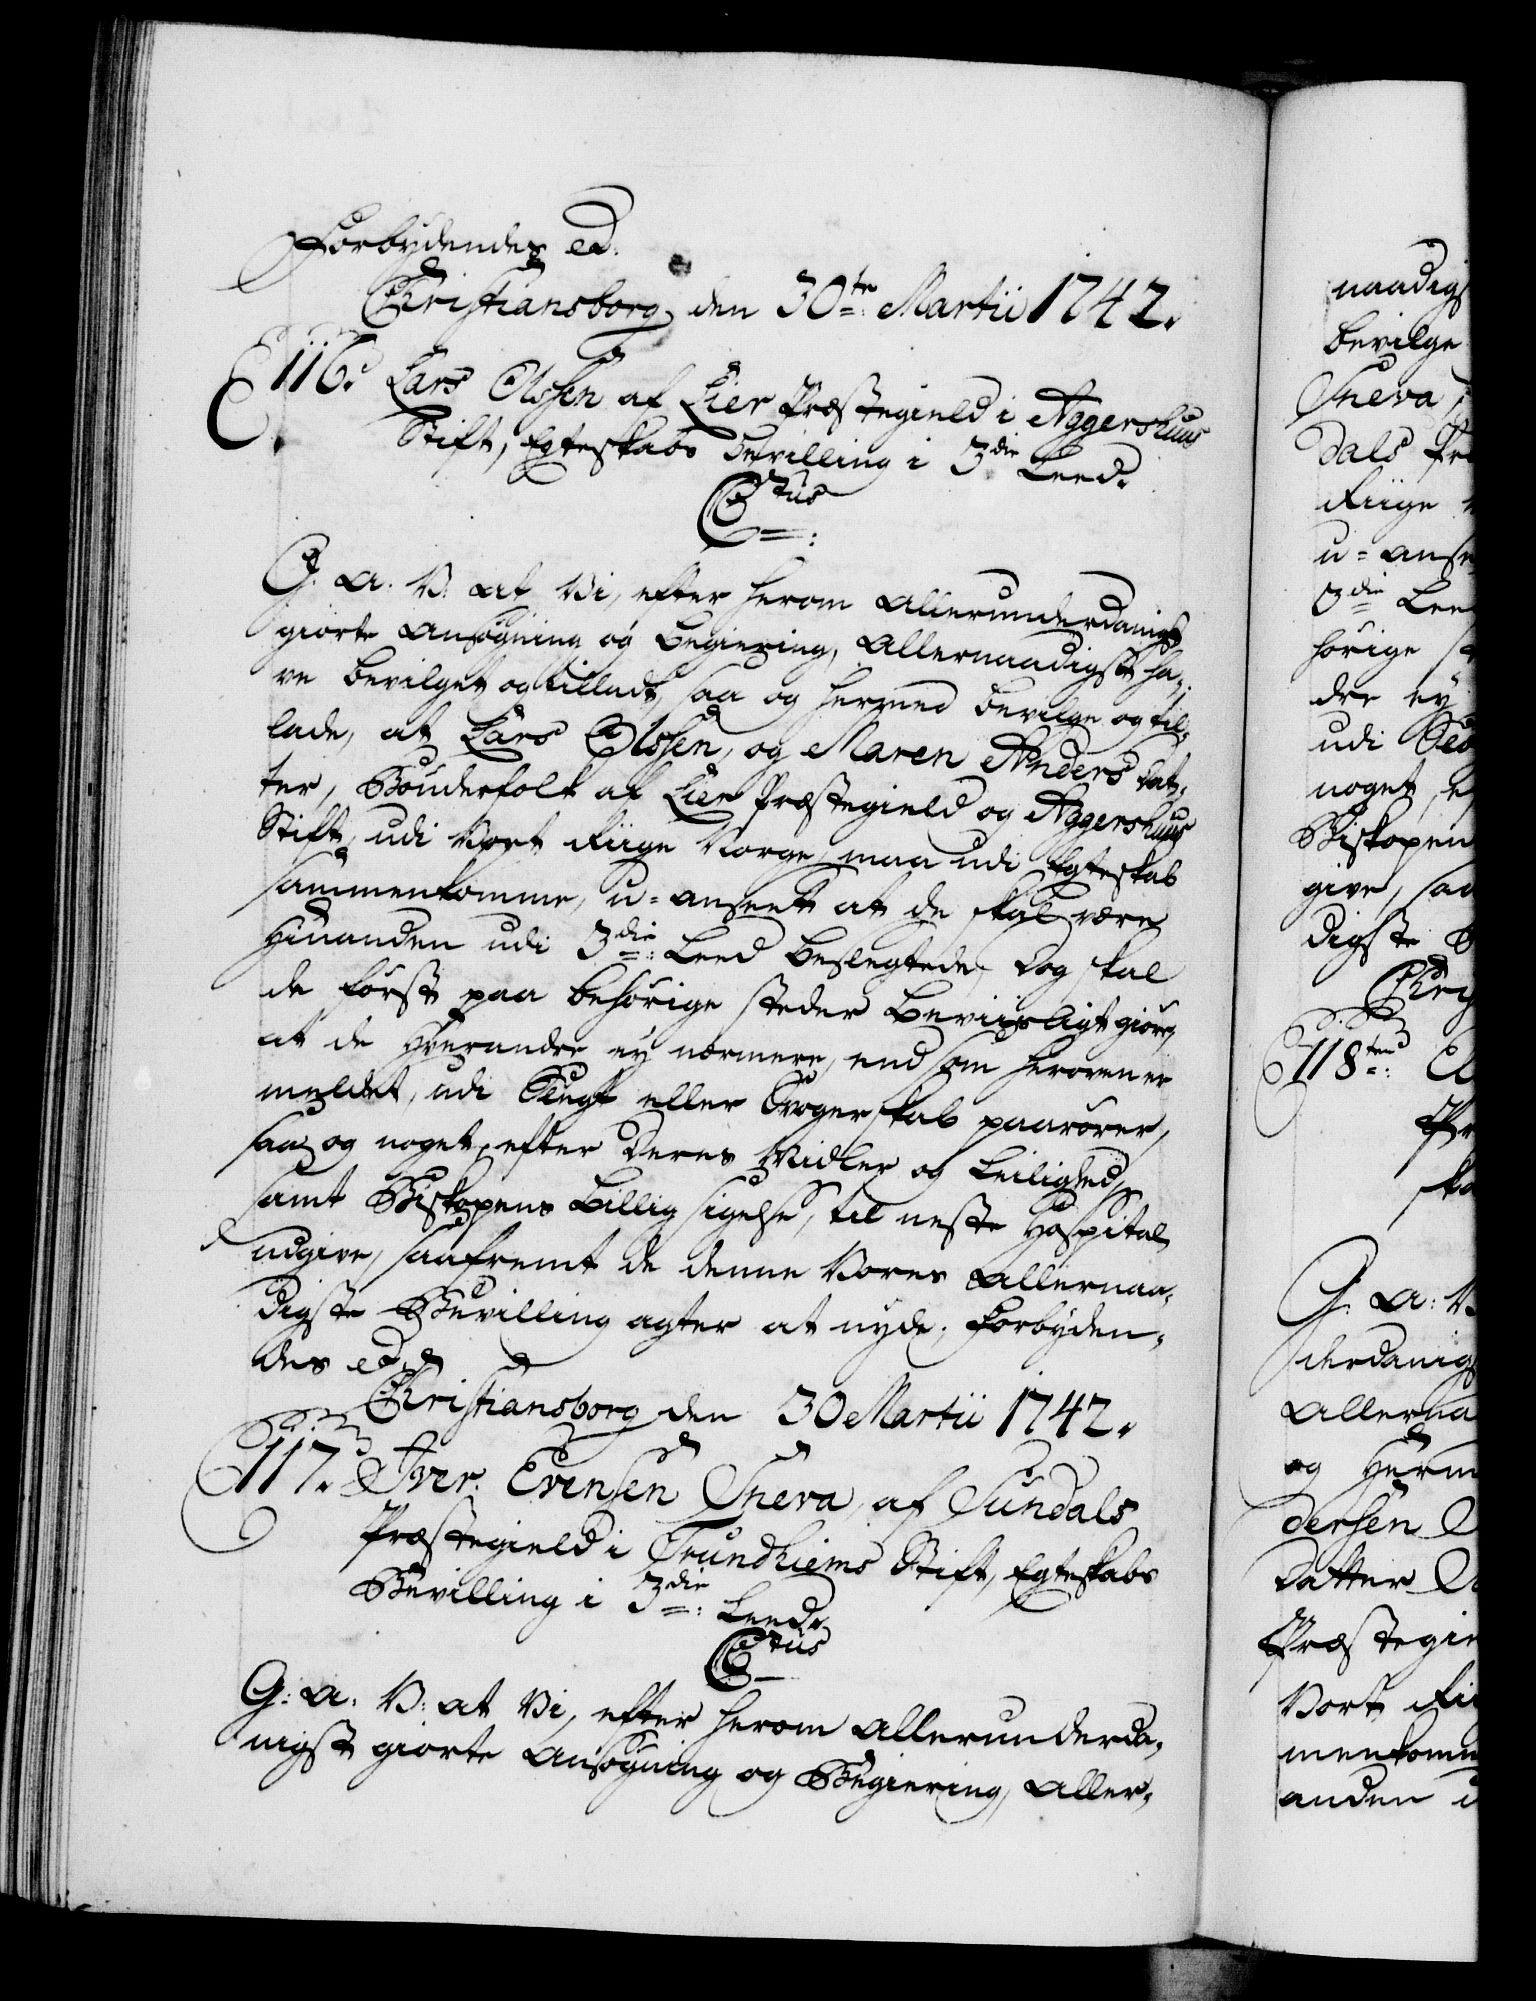 Forbydendes &c:
Christiansborg den 30te: Martii 1742.
116. Lars Olssen af Lier Præstegield i Aggershuus
Stift, Egteskabs Bevilling i 3die Leed.
C6tus
G. a. V. at Vi, efter herom allerunderdanigst
giorte ansøgning og begiering, allernaadigst ha-
ve bevilget og tilladt, saa og hermed bevilge og til-
lade, at Lars Olssen, og Maren Anders dat-
ter, Bønderfolk af Lier Præstegield og Aggershuus
Stift, udi Vort Riige Norge, maa udi Egteskab
sammenkomme, u-anseet at de skal være
hinanden udi 3die: Leed beslegtede, dog skal
de først paa behørige steder beviisligt giøre,
at de hverandre ey nærmere, end som heroven er
meldet, udi Slegt eller Svogerskab paarører,
saa og noget, efter deres Midler og Leilighed,
samt Biskopens billig sigelse, til neste Hospital
udgive, saafremt de denne Vores allernaa-
digste Bevilling agter at nyde, forbyden-
des &c.
Christiansborg den 30 Martii 1742.
117. Iver Evensen Sneva, af Sundals
Præstegield i Trundhiems Stift, Egteskabs
Bevilling i 3die: Leed.
C6tus
G: a: V: at Vi, efter herom allerunderda-
nigst giorte ansøgning og Begiering, aller-
naadigs
bevilge
Sneva,
dals Præ
Riige
u-anse
3die Lee
hørige st
dre ey
udi Sl
noget, e
Biskopen
give, saa
digste B
Chri
118ten: El
Pr
ska
G: a: V
derdanigs
allerna
og herm
dersen
datter
Præstegie
Vort Ri
menkomm
anden u